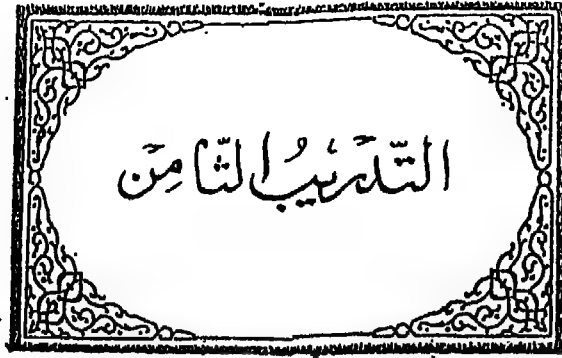 التَّدْرِيبُ الثَّامِن